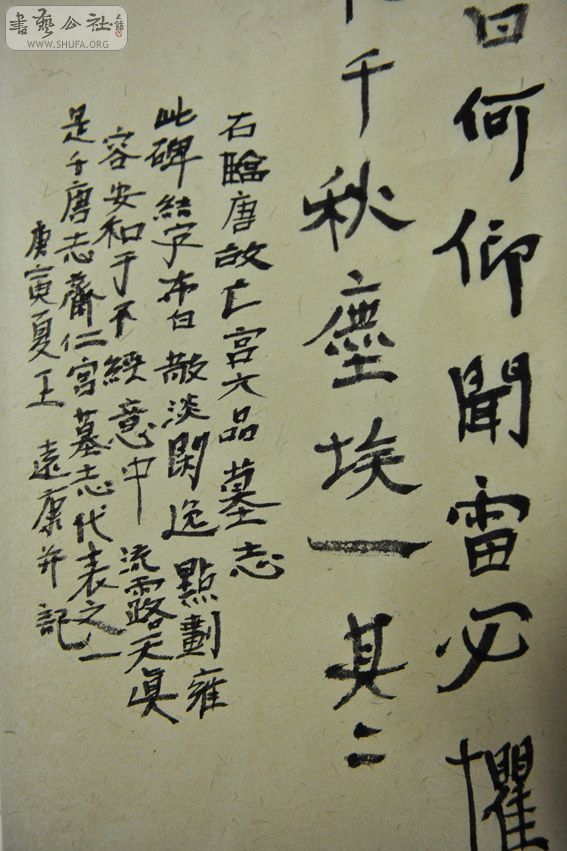 書藝公社
WWW.SHUFA.ORG
何仰聞雷必懼
千秋塵埃一其二
右臨唐故亡宮六品墓志
此碑結字布白散淡閑逸點劃雍
容安和于不經意中流露天真
是千唐志齋仁宮墓志代表之一
庚寅夏王遠康并記